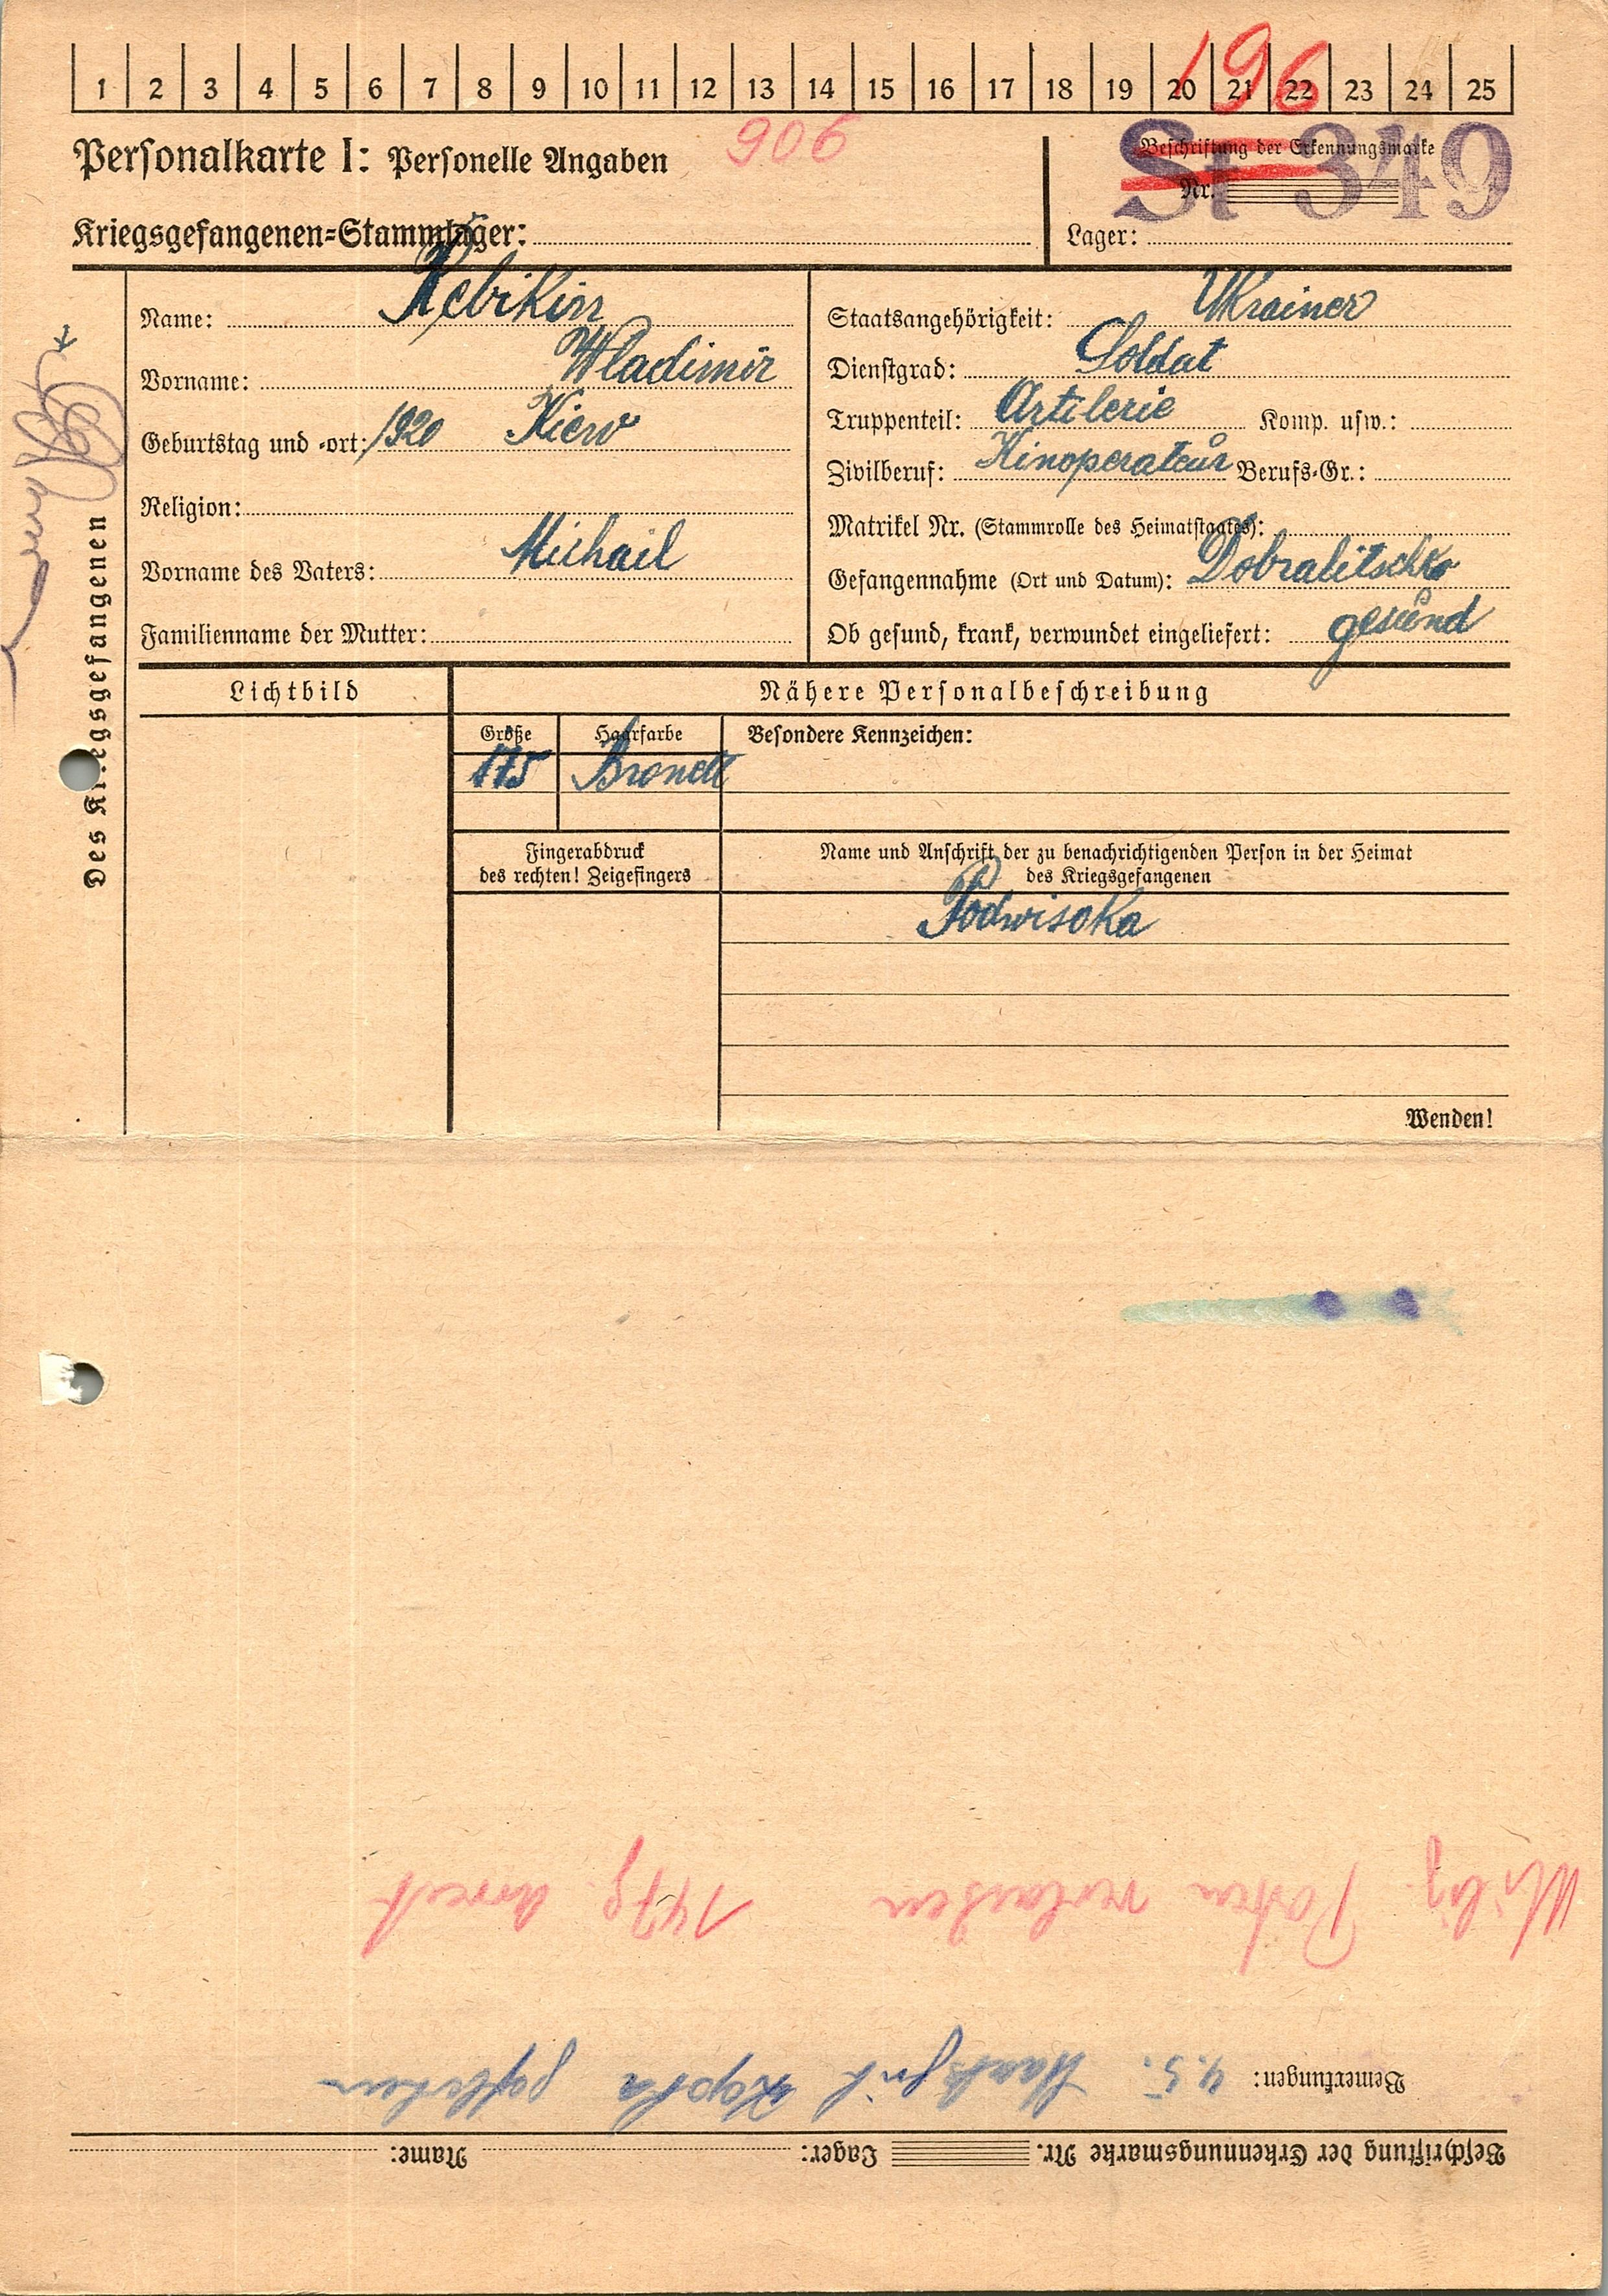 1 2 3 4 5 6 7 8 9 10 11 12 13 14 15 16 17 18 19 20 21 22 23 24 25
196
Personalkarte I: Personelle Angaben
906
Beschriftung der Erkennungsmarke
Nr.
St 349
Kriegsgefangenen-Stammlager:
Lager:
Des Kriegsgefangenen
Name: Rebikin
Vorname: Wladimir
Geburtstag und -ort: 1920 Kiew
Religion:
Vorname des Vaters: Michail
Familienname der Mutter:
Staatsangehörigkeit: Ukrainer
Dienstgrad: Soldat
Truppenteil: Artilerie Komp. usw.:
Zivilberuf: Kinoperateur Berufs-Gr.:
Matrikel Nr. (Stammrolle des Heimatstaates):
Gefangennahme (Ort und Datum): Dobralitschko
Ob gesund, krank, verwundet eingeliefert: gesund
Lichtbild
Nähere Personalbeschreibung
Größe Haarfarbe Besondere Kennzeichen:
175 Bronett
Fingerabdruck
des rechten! Zeigefingers
Name und Anschrift der zu benachrichtigenden Person in der Heimat
des Kriegsgefangenen
Podwisoka
Wenden!
Beschriftung der Erkennungsmarke Nr. Lager: Name:
Bemerkungen: 4.5.
Posten verlassen 14 Tg. Arrest